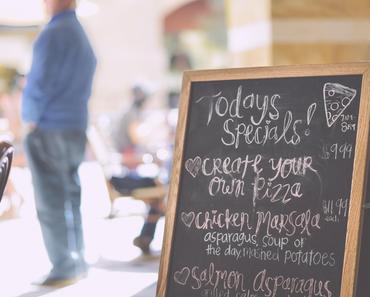 Todays
Specials!
7PM-
8PM
$9.99
create your
own pizza
chicken Marsala
$11.99
each
asparagus, soup of
the day, mashed potatoes
Salmon Asparagus
grilled